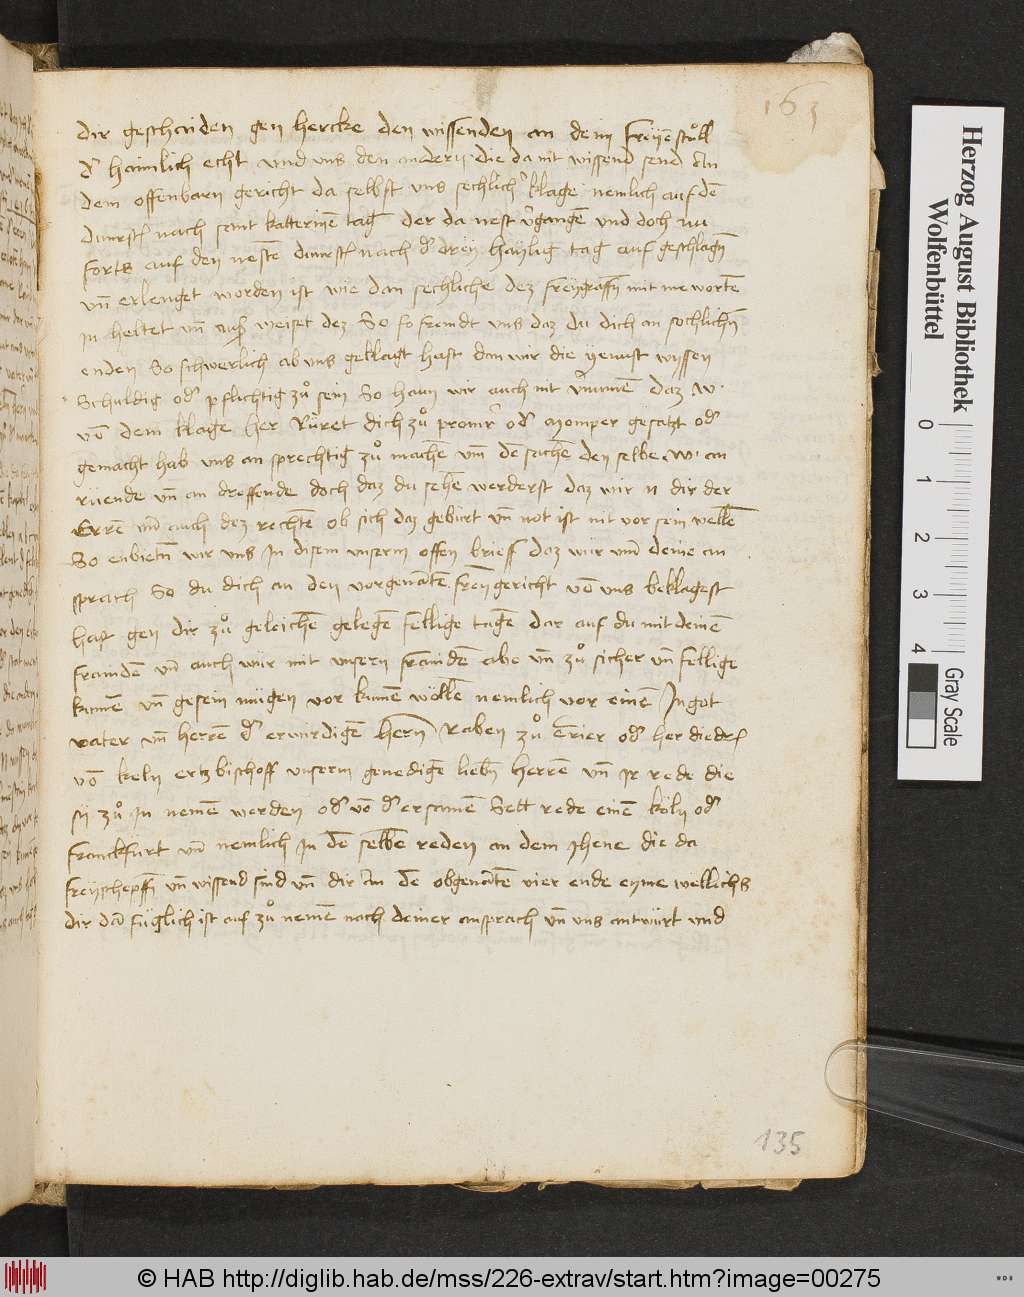 163
dir geschaiden gen hercke den wissenden an dem freyē stůll
d' haimlich echt vnd vns den andern die da nit wissend send An
dem offenbarn gericht da selbst vns sechlich' klage nemlich auf dē
nach sant katterinē tag der da nest v'gangē vnd doch nu
forts auf den nestē nach d' drey haylig tag auf geschlagn̄
vn̄ erlenget worden ist wie dan sechliche dez freygraffn̄ mit me wortē
In heltet vn̄ weiset dez So fremdt vns daz du dich an sochlichn̄
enden So schwerlich ab vns geklagt hast dan wir die yenust wyssen
Schuldig od' pflichtig zů sein So haun wir auch nit v'numē daz W
vō dem klage her Růret dich zů od' momper gesatzt od'
gemacht hab vns an sprechtig zů machē vm̄ dē sachē den selbe W an
rüende vn̄ an dreffende doch daz du sehē werderst daz wir n dir der
Errē vnd auch dez rechtē ob sich daz geburt vn̄ not ist nit vor sein wellē
So enbietn̄ wir vns In disem vnserm offen brieff daz wir vm̄ deine an
sprach So du dich an den vorgenātē freygericht vō vns beklagest
hast gen dir zů geleichē gelegē fellige tagē dar auf du mit deinē
fraindē vn̄ auch wir mit vnsern fraindē abe vn̄ zů sicher vn̄ fellige
kumē vn̄ gesein mügen vor kumē wöllē nemlich vor einē In got
vater vn̄ herrē d' erwirdigē hern Raben zů Trier od' her
vō keln ertzbischoff vnserm genedigē liebn̄ herrē vn̄ Ir rede die
sy zů In nemē werden od' vō d' ersamē Stett rede einē köln od'
Franckfurt vn̄ nemlich In dē selbē reden an dem Ihene die da
freyschepffn̄ vn̄ wissend sind vn̄ dir An dē obgenātē vier ende eyme wellichs
dir dā füglich ist auf zů nemē nach deiner ansprach vn̄ vns antwürt vnd
135
Herzog August Bibliothek
Wolfenbüttel
0
1
2
3
4
Gray Scale
© HAB http://diglib.hab.de/mss/226-extrav/start.htm?image=00275